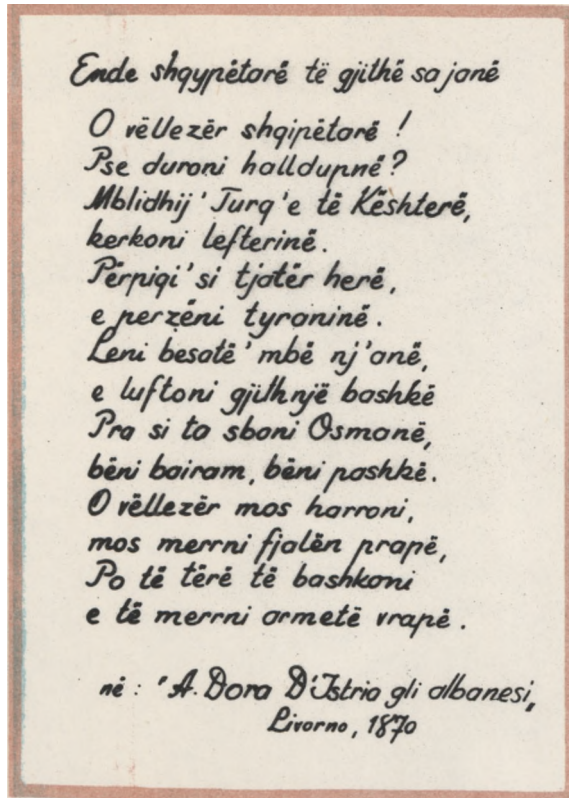 Ende shqypëtarë të gjithë sa janë
O vëllezër shqipëtarë !
Pse duroni halldupnë?
Mblidhij' Turq'e të Kështerë,
kerkoni lefterinë.
Përpiqi' si tjatër herë,
e perzëni tyraninë.
Leni besatë' mbë nj'anë,
e luftoni gjithnjë bashkë
Pra si ta sboni Osmanë,
bëni bairam, bëni pashkë.
O vëllezër mos harroni,
mos merrni fjalën prapë,
Po të tërë të bashkoni
e të merrni armetë vrapë.
në : "A. Dora D'Istria gli albanesi„
Livorno, 1870